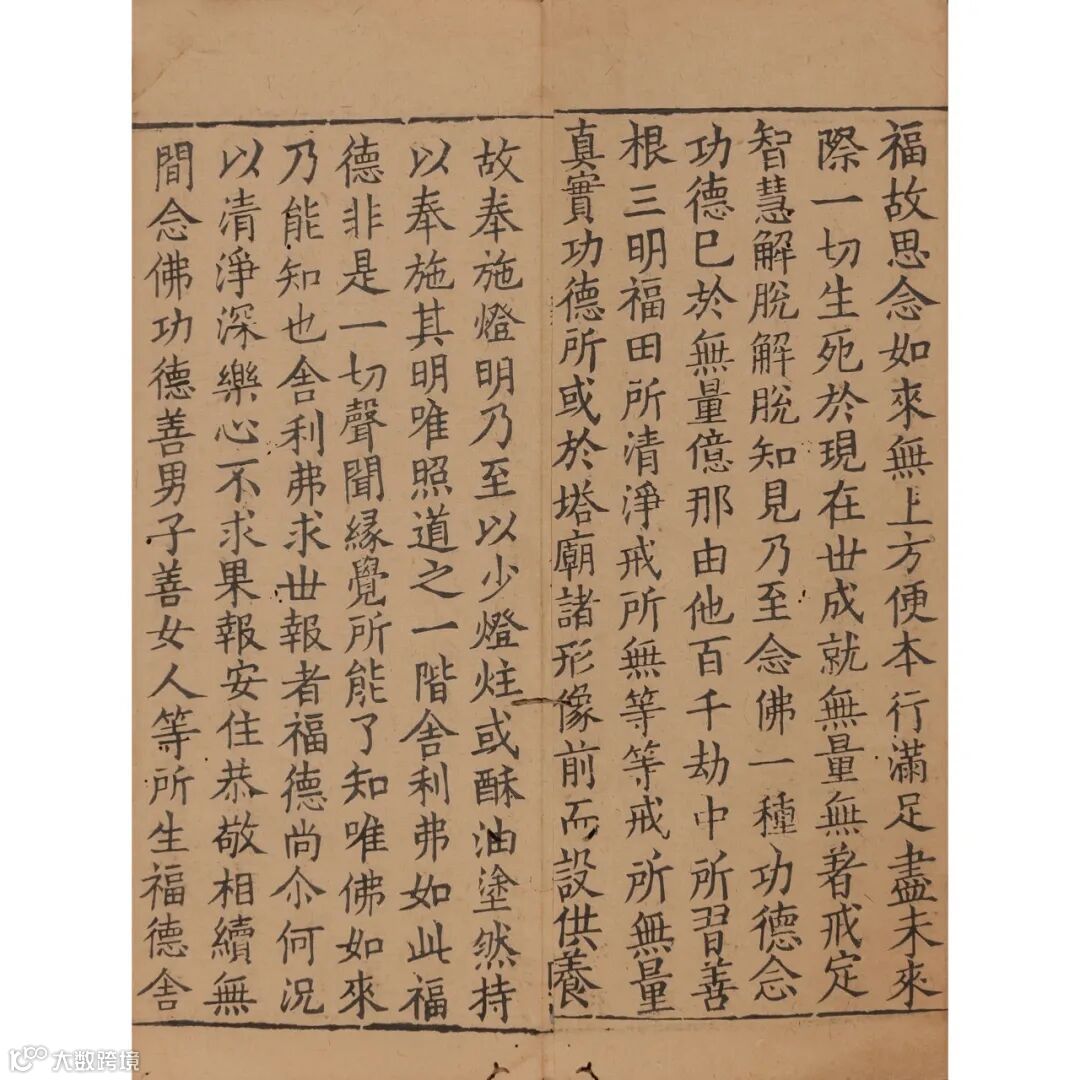 福故思念如來無上方便本行滿足盡未來
際一切生死於現在世成就無量無著戒定
智慧解脫解脫知見乃至念佛一種功德念
功德巳於無量億那由他百千劫中所習善
根三明福田所清淨戒所無等等戒所無量
真實功德所或於塔廟諸形像前而設供養
故奉施燈明乃至以少燈炷或酥油塗然持
以奉施其明唯照道之一階舍利弗如此福
德非是一切聲聞緣覺所能了知唯佛如來
乃能知也舍利弗求世報者福德尚尒何況
以清淨深樂心不求果報安住恭敬相續無
間念佛功德善男子善女人等所生福德舍
大数跨境